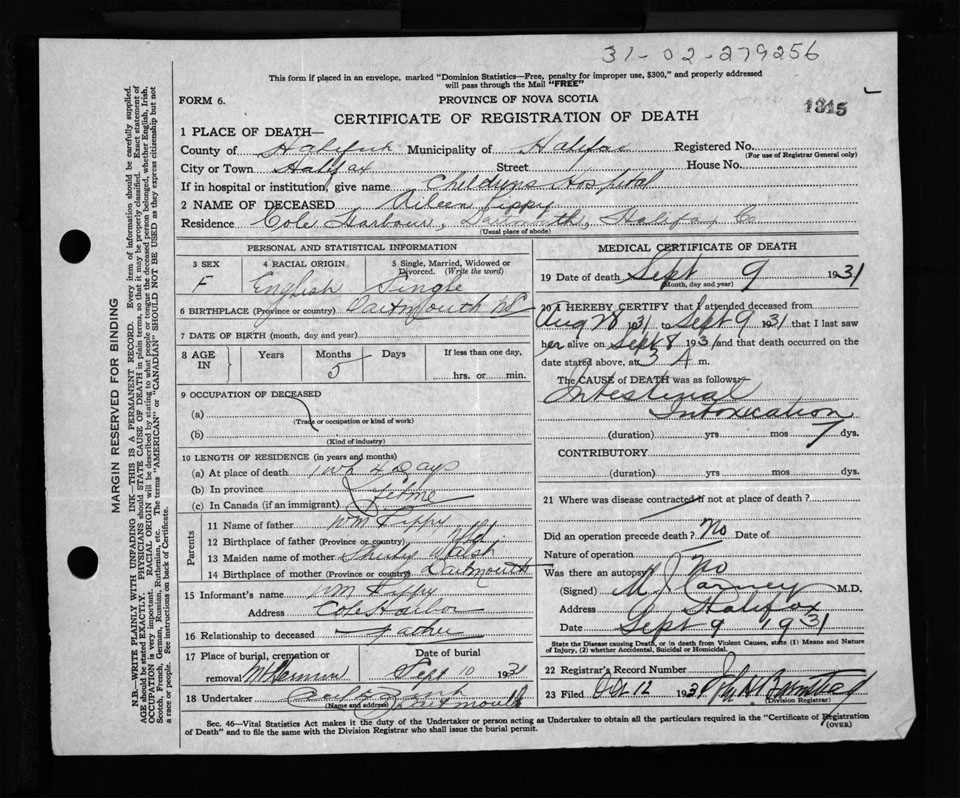 31-02-279256
This form if placed in an envelope, marked "Dominion Statistics—Free, penalty for improper use, $300," and properly addressed
will pass through the Mail "FREE"
FORM 6.
PROVINCE OF NOVA SCOTIA
1315
CERTIFICATE OF REGISTRATION OF DEATH
1 PLACE OF DEATH—
County of Halifax Municipality of Halifax Registered No.
(For use of Registrar General only)
City or Town Halifax Street House No.
If in hospital or institution, give name Childrens Hospital
2 NAME OF DECEASED Aileen Pippy
Residence Cole Harbour, Dartmouth, Halifax Co
(Usual place of abode)
PERSONAL AND STATISTICAL INFORMATION
3 SEX 4 RACIAL ORIGIN 5 Single, Married, Widowed or
Divorced. (Write the word)
F English Single
6 BIRTHPLACE (Province or country) Dartmouth NS
7 DATE OF BIRTH (month, day and year)
8 AGE IN Years Months Days If less than one day,
5 hrs. or min.
9 OCCUPATION OF DECEASED
(a)
(Trade or occupation or kind of work)
(b)
(Kind of industry)
10 LENGTH OF RESIDENCE (in years and months)
(a) At place of death 1 wk 4 Days
(b) In province
(c) In Canada (if an immigrant) 5 mo
Parents
11 Name of father Wm Pippy
12 Birthplace of father (Province or country) Nfld
13 Maiden name of mother Shirley Walsh
14 Birthplace of mother (Province or country) Dartmouth
15 Informant's name Wm Pippy
Address Cole Harbor
16 Relationship to deceased Father
17 Place of burial, cremation or Date of burial
removal Mt Hermon Sept 10 1931
18 Undertaker Dartmouth
(Name and address)
MEDICAL CERTIFICATE OF DEATH
19 Date of death Sept 9 1931
(Month, day and year)
20 I HEREBY CERTIFY that I attended deceased from
Aug 28 1931 to Sept 9 1931 that I last saw
her alive on Sept 8 1931 and that death occurred on the
date stated above, at 3 A m.
The CAUSE OF DEATH was as follows:
Intestinal
Intoxication
(duration) yrs mos 7 dys.
CONTRIBUTORY
(duration) yrs mos dys.
21 Where was disease contracted if not at place of death?
Did an operation precede death? No Date of
Nature of operation
Was there an autopsy? No
(Signed) M. J. Carney M.D.
Address Halifax
Date Sept 9 1931
State the Disease causing Death, or in death from Violent Causes, state (1) Means and Nature
of Injury, (2) whether Accidental, Suicidal or Homicidal.
22 Registrar's Record Number
23 Filed Oct 12 1931
(Division Registrar)
Sec. 46—Vital Statistics Act makes it the duty of the Undertaker or person acting as Undertaker to obtain all the particulars required in the "Certificate of Registration
of Death" and to file the same with the Division Registrar who shall issue the burial permit.
(OVER)
MARGIN RESERVED FOR BINDING
N.B.—WRITE PLAINLY WITH UNFADING INK—THIS IS A PERMANENT RECORD. Every item of information should be carefully supplied.
AGE should be stated EXACTLY. PHYSICIANS should STATE CAUSE OF DEATH in plain terms, so that it may be properly classified. Exact statement of
OCCUPATION is very important. RACIAL ORIGIN will be described by stating to what people or tongue the deceased person belonged, whether English, Irish,
Scotch, French, German, Russian, Ruthenian, etc. The terms "AMERICAN" or "CANADIAN" SHOULD NOT BE USED as they express citizenship but not
a race or people. See instructions on back of Certificate.